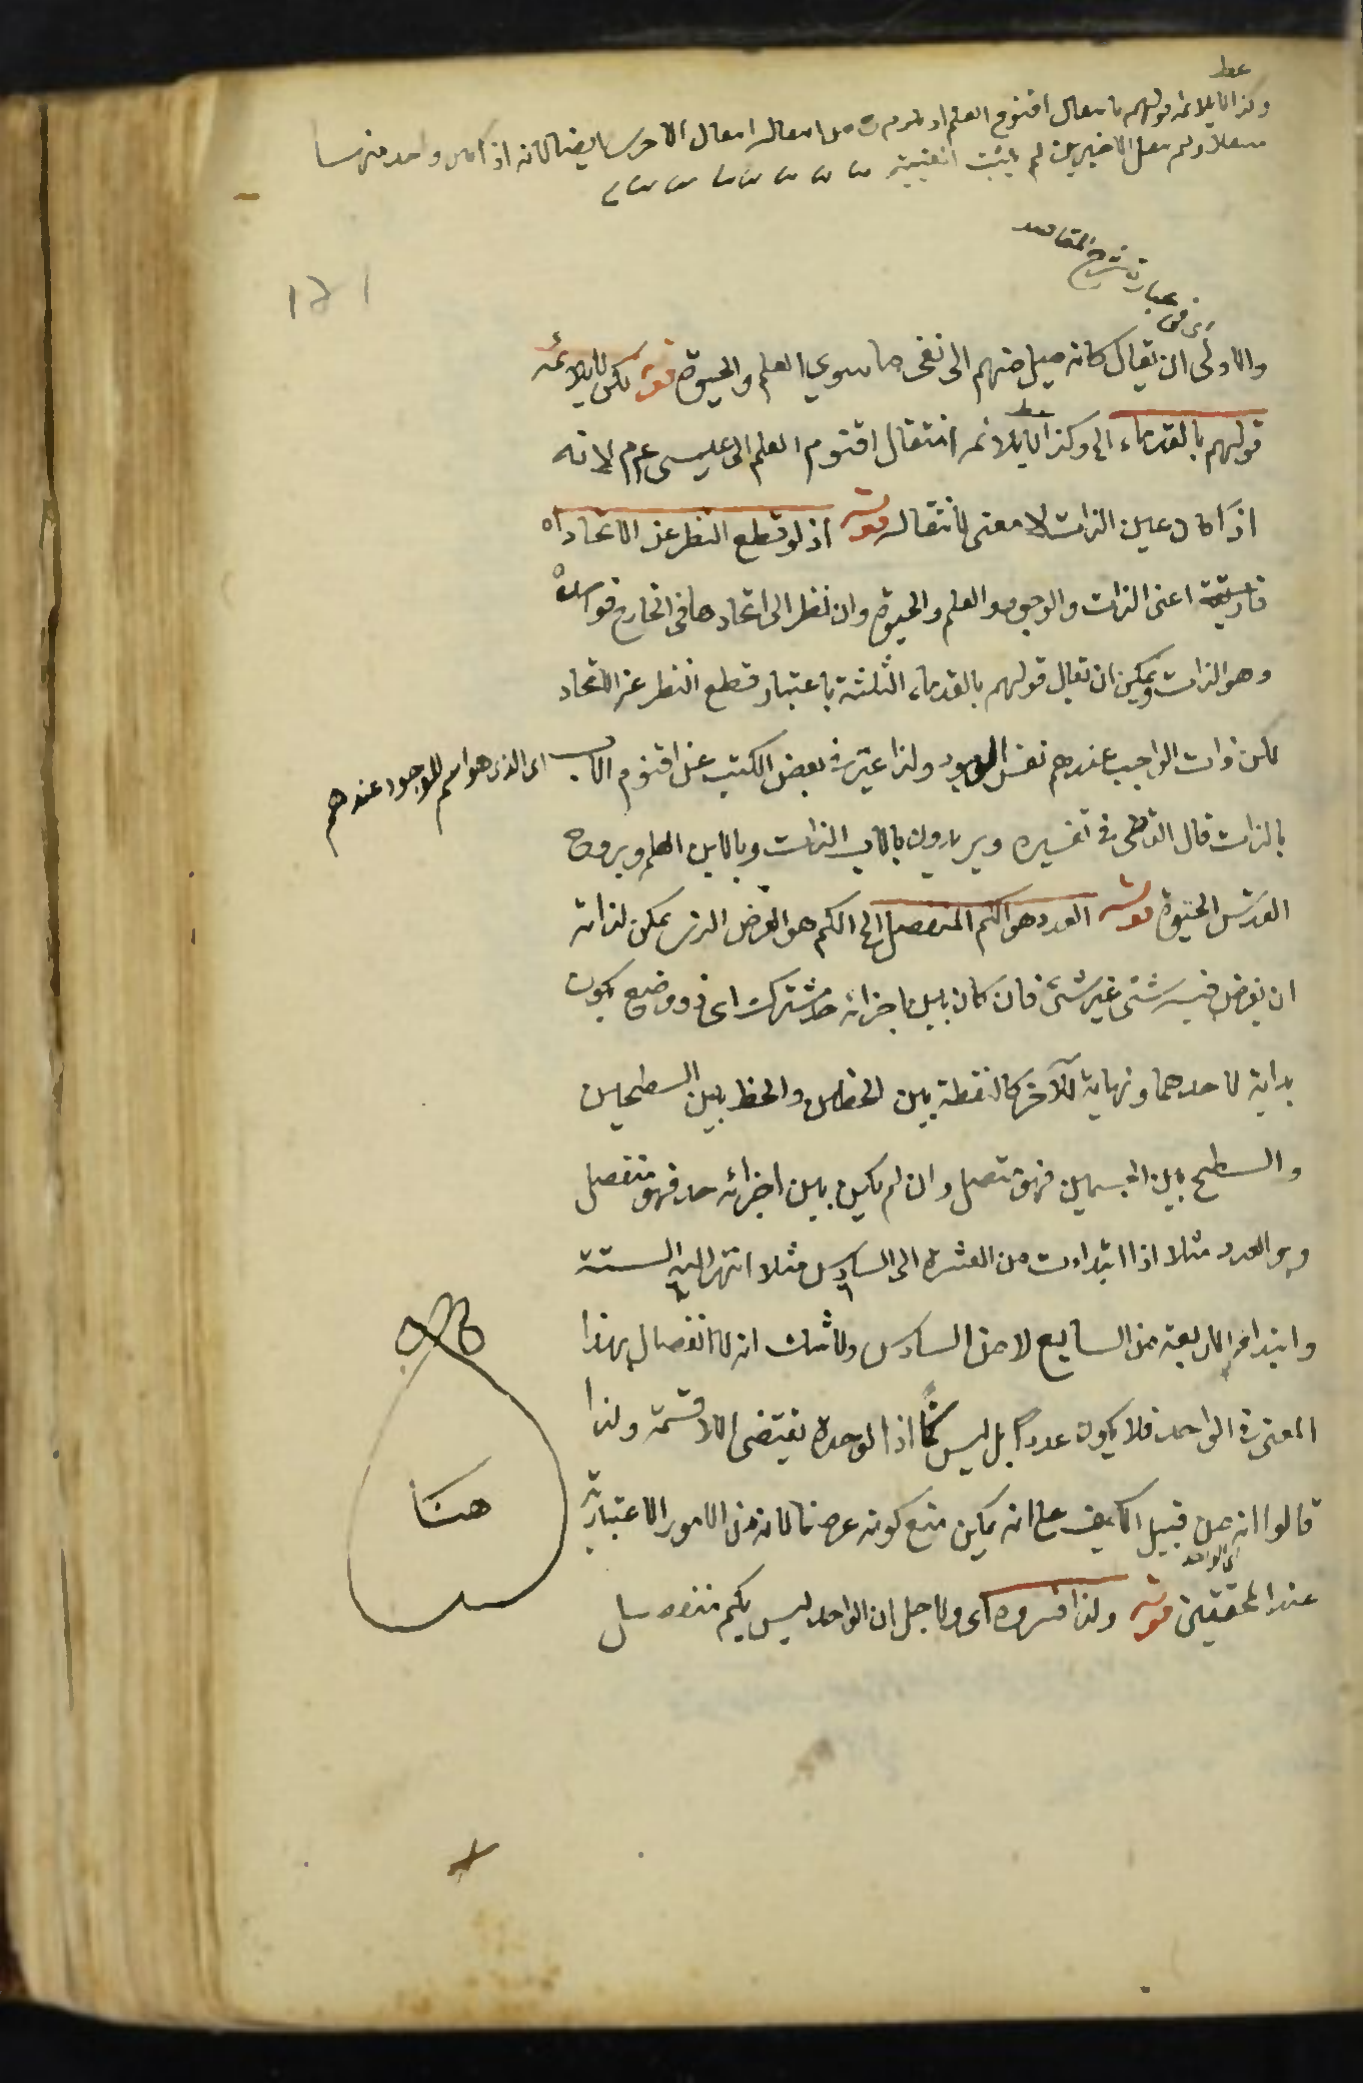 عط
وكذا لا يلائمه قولهم بانتقال اقنوم العلم اذ يلزم من انتقاله انتقال الآخر ايضا لانه اذا كان واحد منهما
منتقلا ولم ينتقل الاخير لم يثبت العينية
اى فى عبارة شرح المقاصد
والاولى ان يقال كانه ميل منهم الى نفى ما سوى العلم والحيوة قوله لكن لا يلائمه
قولهم بالقدماء الخ وكذا لا يلائمه انتقال اقنوم العلم الى عيسى عم م لانه
اذا كان عين الذات لا معنى لانتقاله قوله اذ لو قطع النظر عن الاتحاد اه
اعنى الذات والوجود والعلم والحيوة وان نظر الى اتحادها فى الخارج
وهو الذات ويمكن ان يقال قولهم بالقدماء الثلثة باعتبار قطع النظر عن الاتحاد
لكن ذات الواجب عندهم نفس الوجود ولذا عبر فى بعض الكتب عن اقنوم الاب
اى الذى هو اسم للوجود عندهم
بالذات قال القاضى فى تفسيره ويريدون بالاب الذات وبالابن العلم وبروح
القدس الحيوة قوله العدد هو الكم المنفصل الخ الكم هو العرض الذى يمكن لذاته
ان يفرض فيه شئ غير شئ فان كان بين اجزائه حد مشترك اى ذو وضع يكون
بداية لاحدهما ونهاية للآخر كالنقطة بين الخطين والخط بين السطحين
والسطح بين الجسمين فهو متصل وان لم يكن بين اجزائه حد فهو منفصل
وهو العدد مثلا اذا ابتدات من العشرة الى السادس مثلا انتهى اليه الستة
وابتداء الاربعة من السابع لا من السادس ولا شك انه لا انفصال بهذا
المعنى فى الواحد فلا يكون عددا بل ليس كما اذ الوحدة يقتضى اللاقسمة ولذا
هنا
قالوا انه من قبيل الكيف على انه يمكن منع كونه عرضا لانه من الامور الاعتبارية
اى الواحد
عند المحققين قوله ولذا فسروه اى ولاجل ان الواحد ليس بكم منفصل